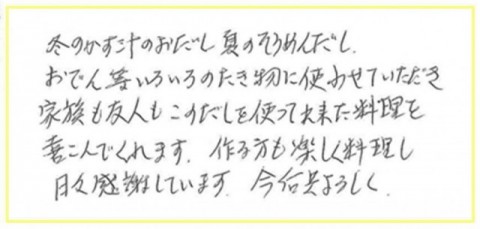 冬のかす汁のおだし 夏のそうめんだし.
おでん等いろいろのたき物に使わせていただき
家族も友人もこのだしを使って出来た料理を
喜こんでくれます. 作る方も楽しく料理し
日々感謝しています. 今后共よろしく.